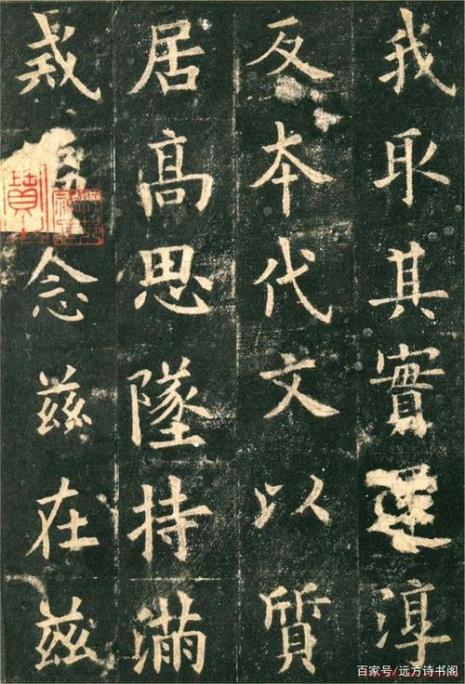 我取其實淳
反本代文以質
居高思墜持滿
戒念茲在茲
百家号/远方诗书阁